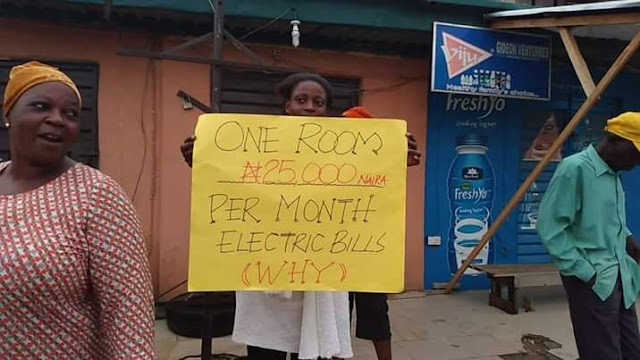 ONE ROOM
₦25,000 NAIRA
PER MONTH
ELECTRIC BILLS
(WHY)
Viju
GIDEON VENTURES
FreshYo
FreshYo